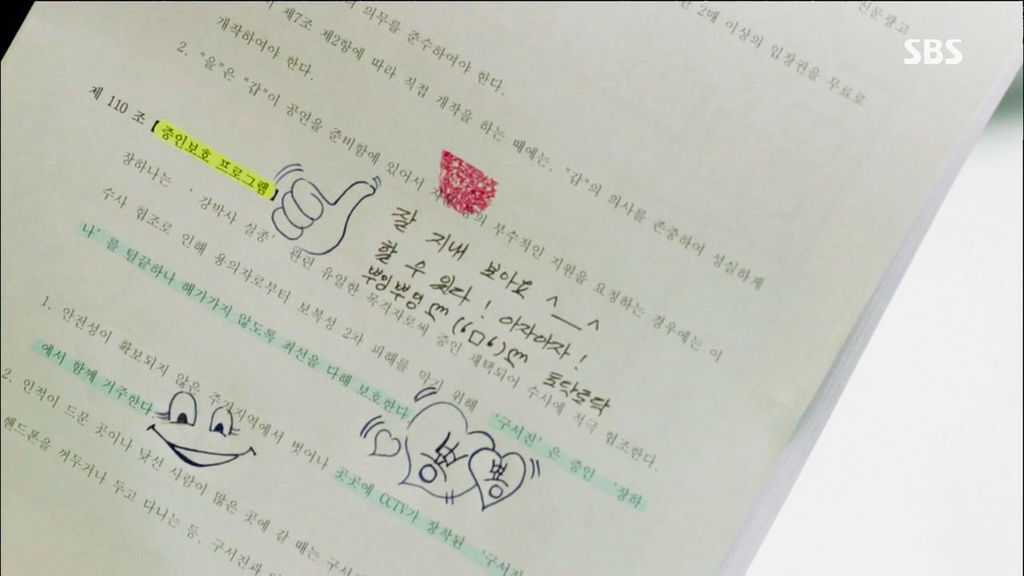 SBS
전문광고
2매 이상의 입장권을 무료로
의무를 준수하여야 한다.
제7조 제2항에 따라 직접 개작을 하는 때에는, "갑"의 의사를 존중하여 성실하게
개작하여야 한다.
2. "을"은 "갑"이 공연을 준비함에 있어서 부수적인 지원을 요청하는 경우에는 이
제 110 조 【증인보호 프로그램】
장하나는 '강박사 실종' 관련 유일한 목격자로써 증인 채택되어 수사에 적극 협조한다.
수사 협조로 인해 용의자로부터 보복성 2차 피해를 막기 위해 '구서진'은 증인 '장하
나'를 털끝하나 해가가지 않도록 최선을 다해 보호한다
1. 안전성이 확보되지 않은 주거지역에서 벗어나 곳곳에 CCTV가 장착된 '구서진
에서 함께 거주한다
2. 인적이 드문 곳이나 낯선 사람이 많은 곳에 갈 때는 구서
핸드폰을 꺼두거나 두고 다니는 등, 구서진과
잘 지내 보아요 ^__^
할 수 있다! 아자아자!
뿌잉뿌잉 ლ(6ㅁ6)ლ 토닥토닥
뿅
뿅